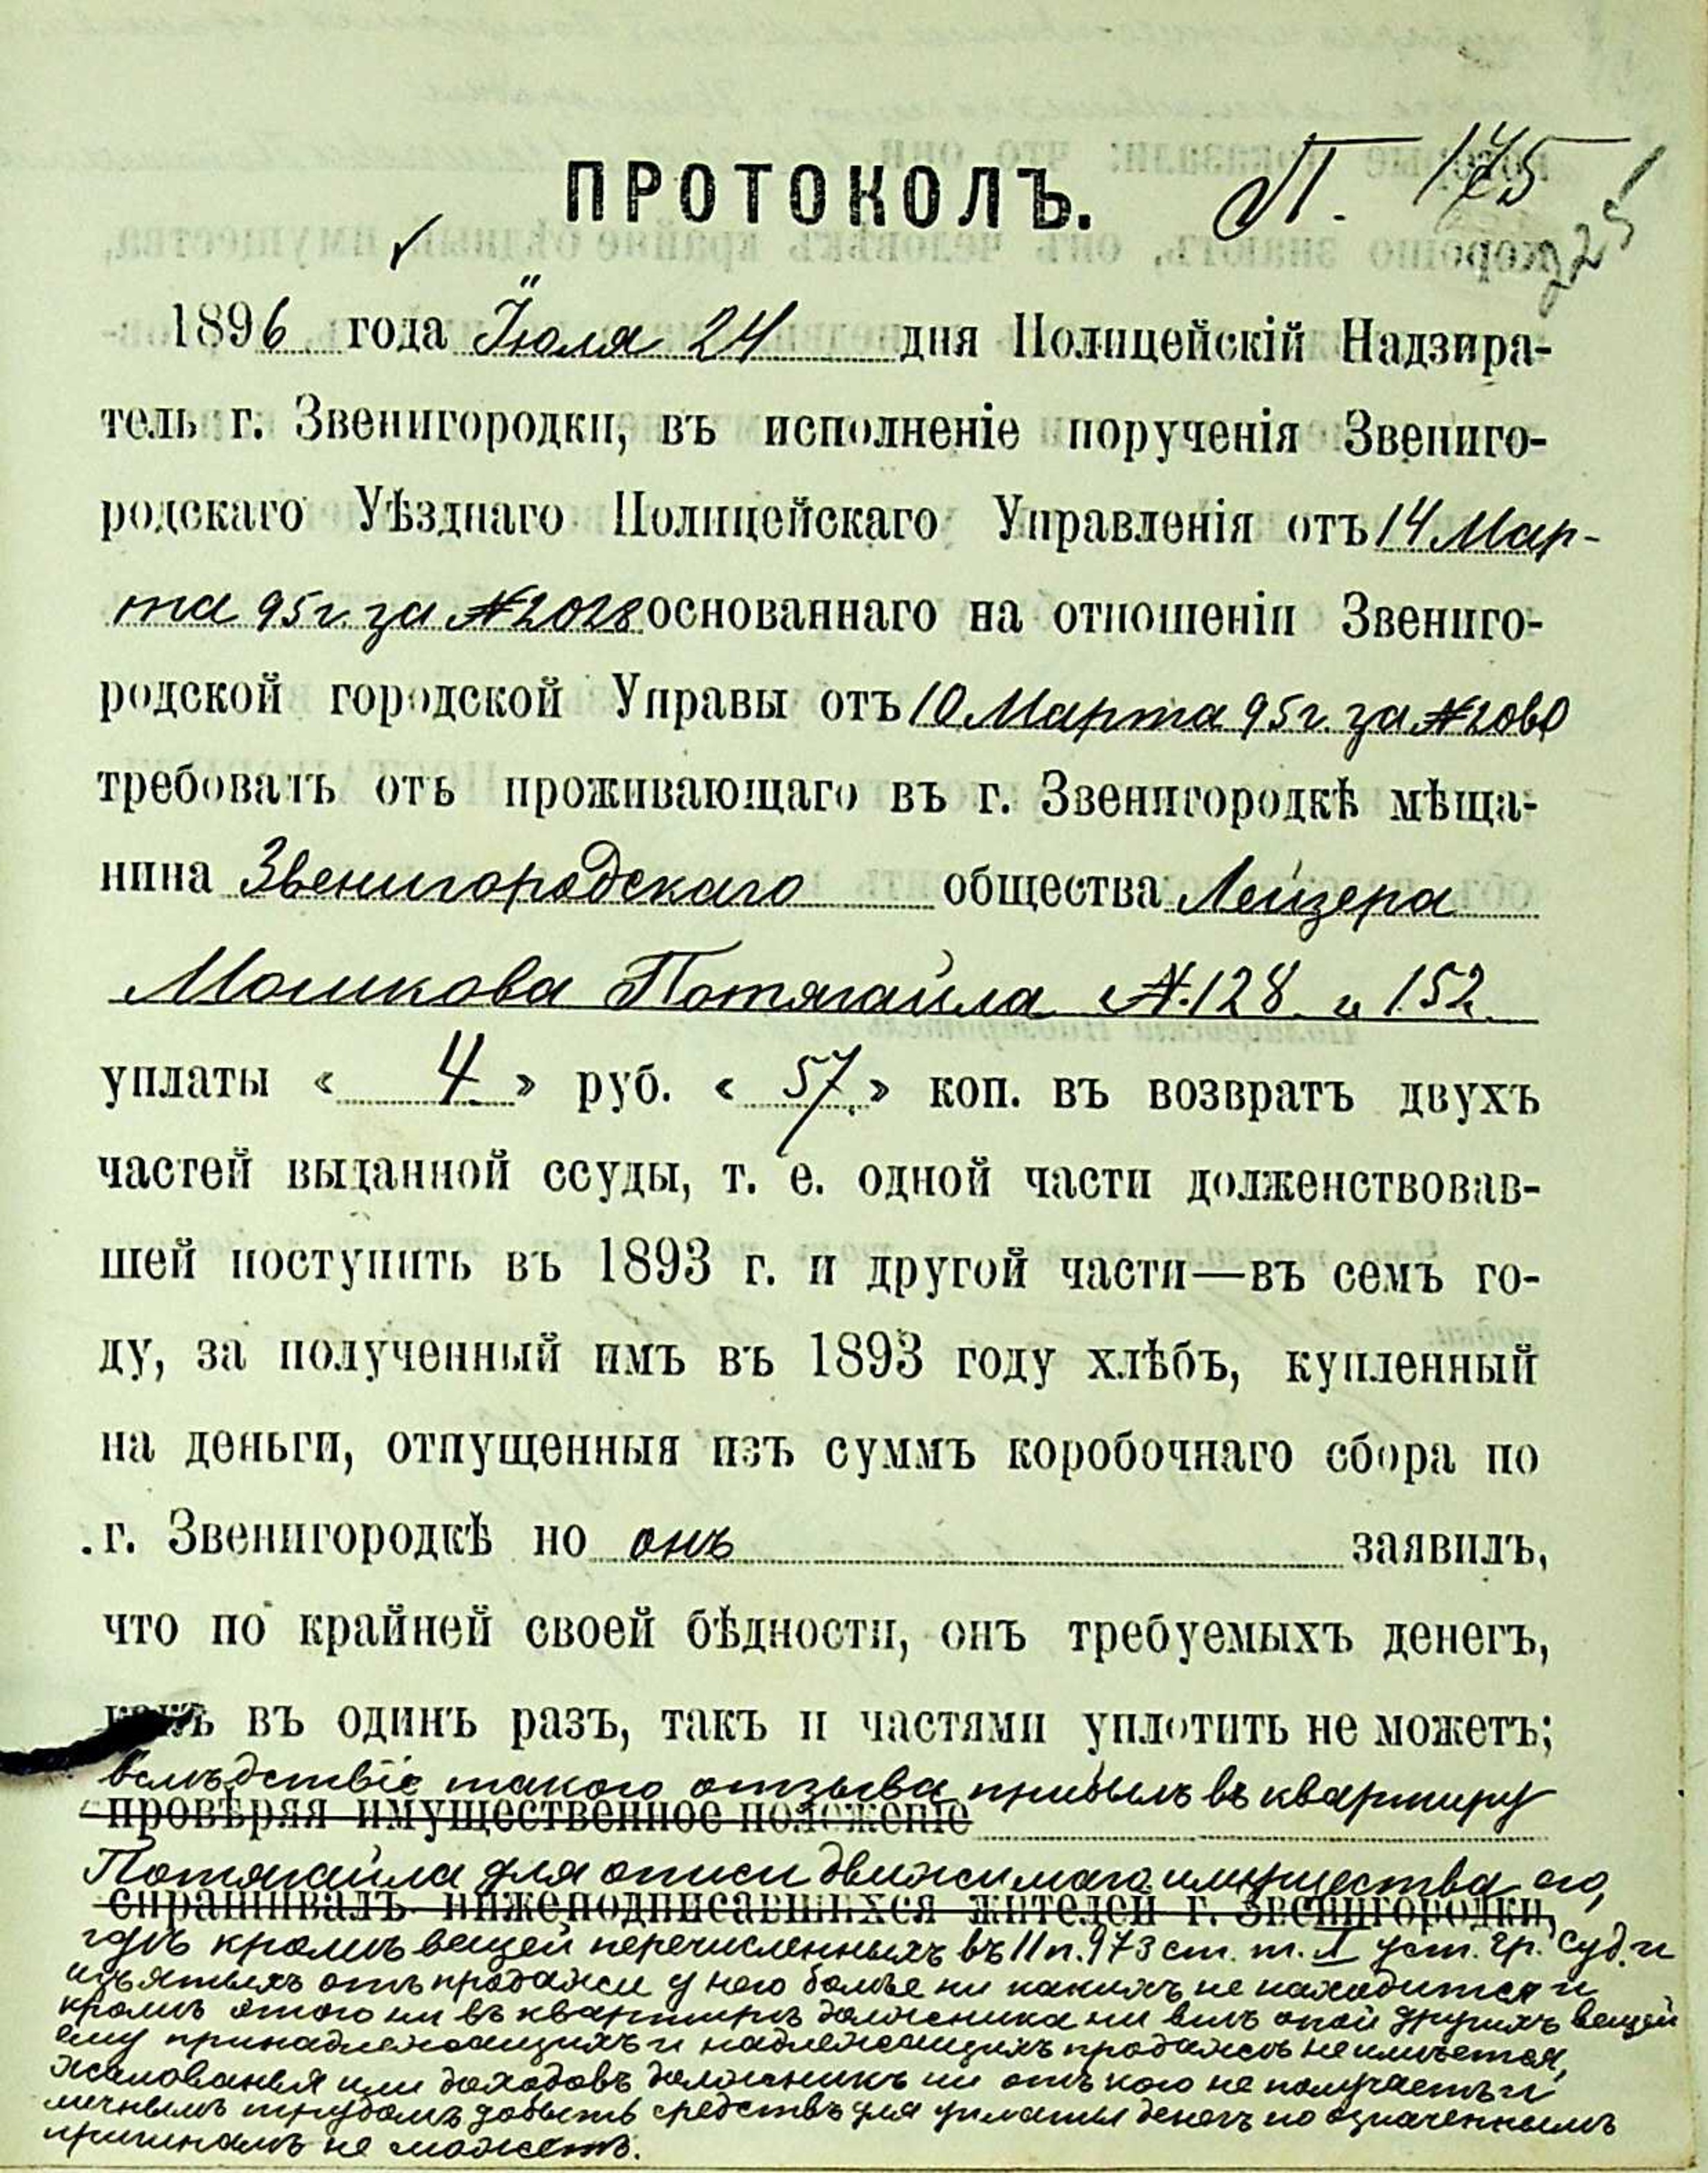 ПРОТОКОЛЪ. П. 175
1896 года Іюля 24 дня Полицейскій Надзира-
тель г. Звенигородки, въ исполненіе порученія Звениго-
родскаго Уѣзднаго Полицейскаго Управленія отъ 14 Мар-
та 95 г. за № 2028 основаннаго на отношеніи Звениго-
родской городской Управы отъ 10 Марта 95 г. за №
требовать отъ проживающаго въ г. Звенигородкѣ мѣща-
нина Звенигородскаго общества Лейзера
Мошкова Потягайла №. 128 и 152
уплаты « 4 » руб. « 57 » коп. въ возвратъ двухъ
частей выданной ссуды, т. е. одной части долженствовав-
шей поступить въ 1893 г. и другой части—въ семъ го-
ду, за полученный имъ въ 1893 году хлѣбъ, купленный
на деньги, отпущенныя изъ суммъ коробочнаго сбора по
г. Звенигородкѣ но онъ заявилъ,
что по крайней своей бѣдности, онъ требуемыхъ денегъ,
какъ въ одинъ разъ, такъ и частями уплотить не можетъ;
вслѣдствіе такого отзыва прибылъ въ квартиру
провѣряя имущественное положеніе
Потягайла для описи движимаго имущества его,
спрашивалъ нижеподписавшихся жителей г. Звенигородки,
гдѣ кромѣ вещей перечисленныхъ въ 11 п. 973 ст. т. X уст. гр. суд. и
изъятыхъ отъ продажи у него болѣе ни какихъ не находится и
кромѣ этого ни въ квартирѣ должника ни внѣ оной другихъ вещей
ему принадлежащихъ и надлежащихъ продажѣ не имѣется,
жалованья или доходовъ должникъ ни отъ кого не получаетъ и
личнымъ трудомъ добыть средствъ для уплаты денегъ по означеннымъ
причинамъ не можетъ.